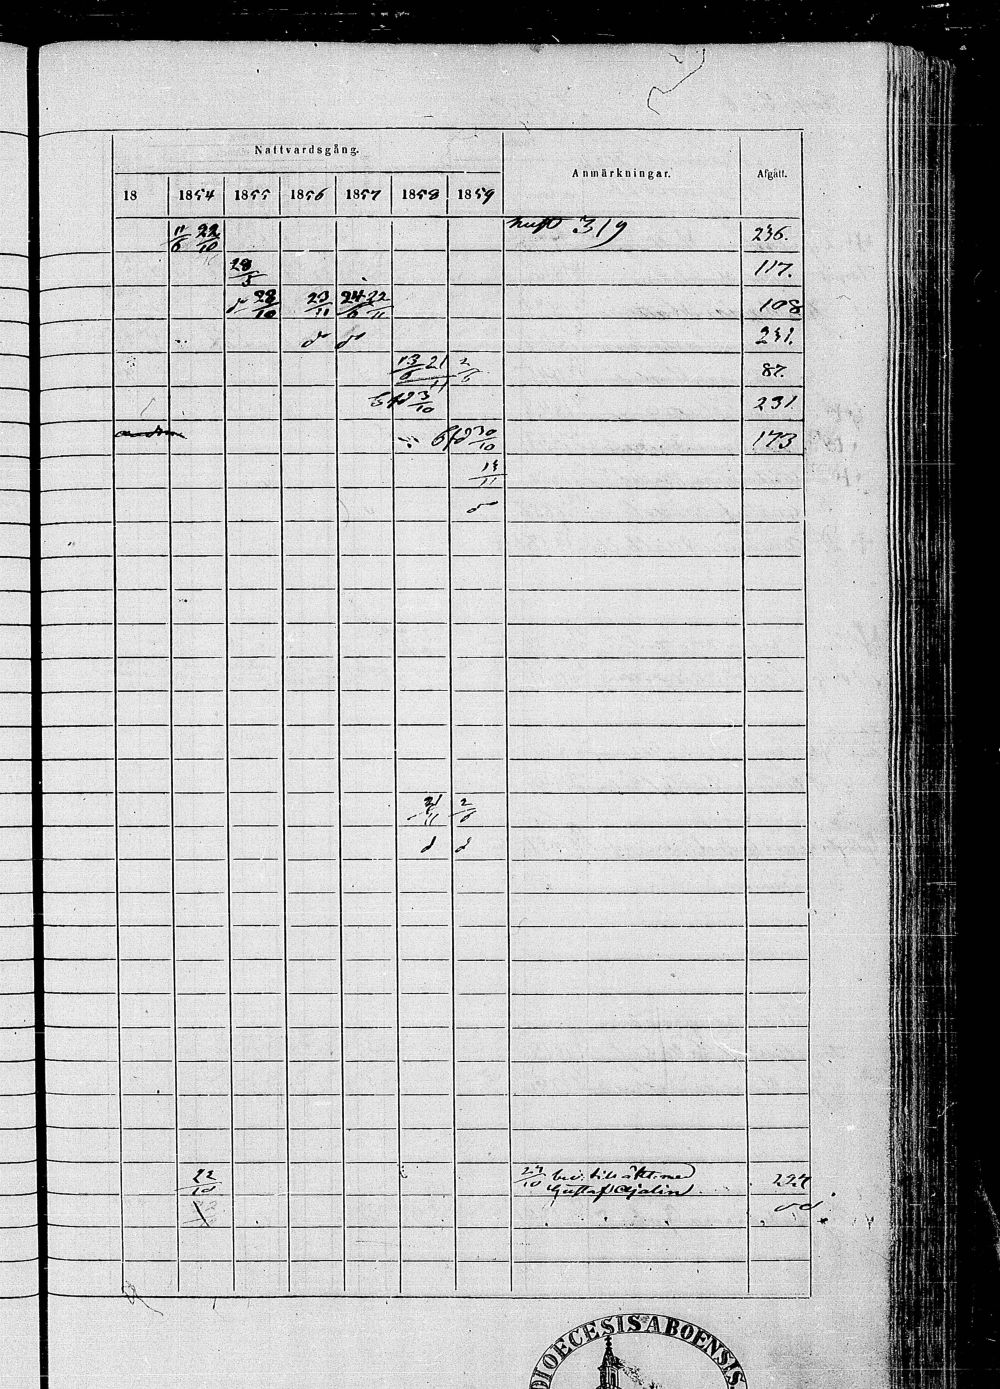 Nattvardsgång.
Anmärkningar.
Afgått.
18 1854 1855 1856 1857 1858 1859
11/6 22/10 319 236.
28/5 117.
d 28/10 23/11 24/6 22/11 108
d d 231.
13/6 21/11 2/6 87.
3/10 231
30/10 173
13/11
d
21/11 2/6
d d
22/10 23/10 bev. till äkt. med 224
Gustaf Ajalin
DIOECESIS ABOENSIS